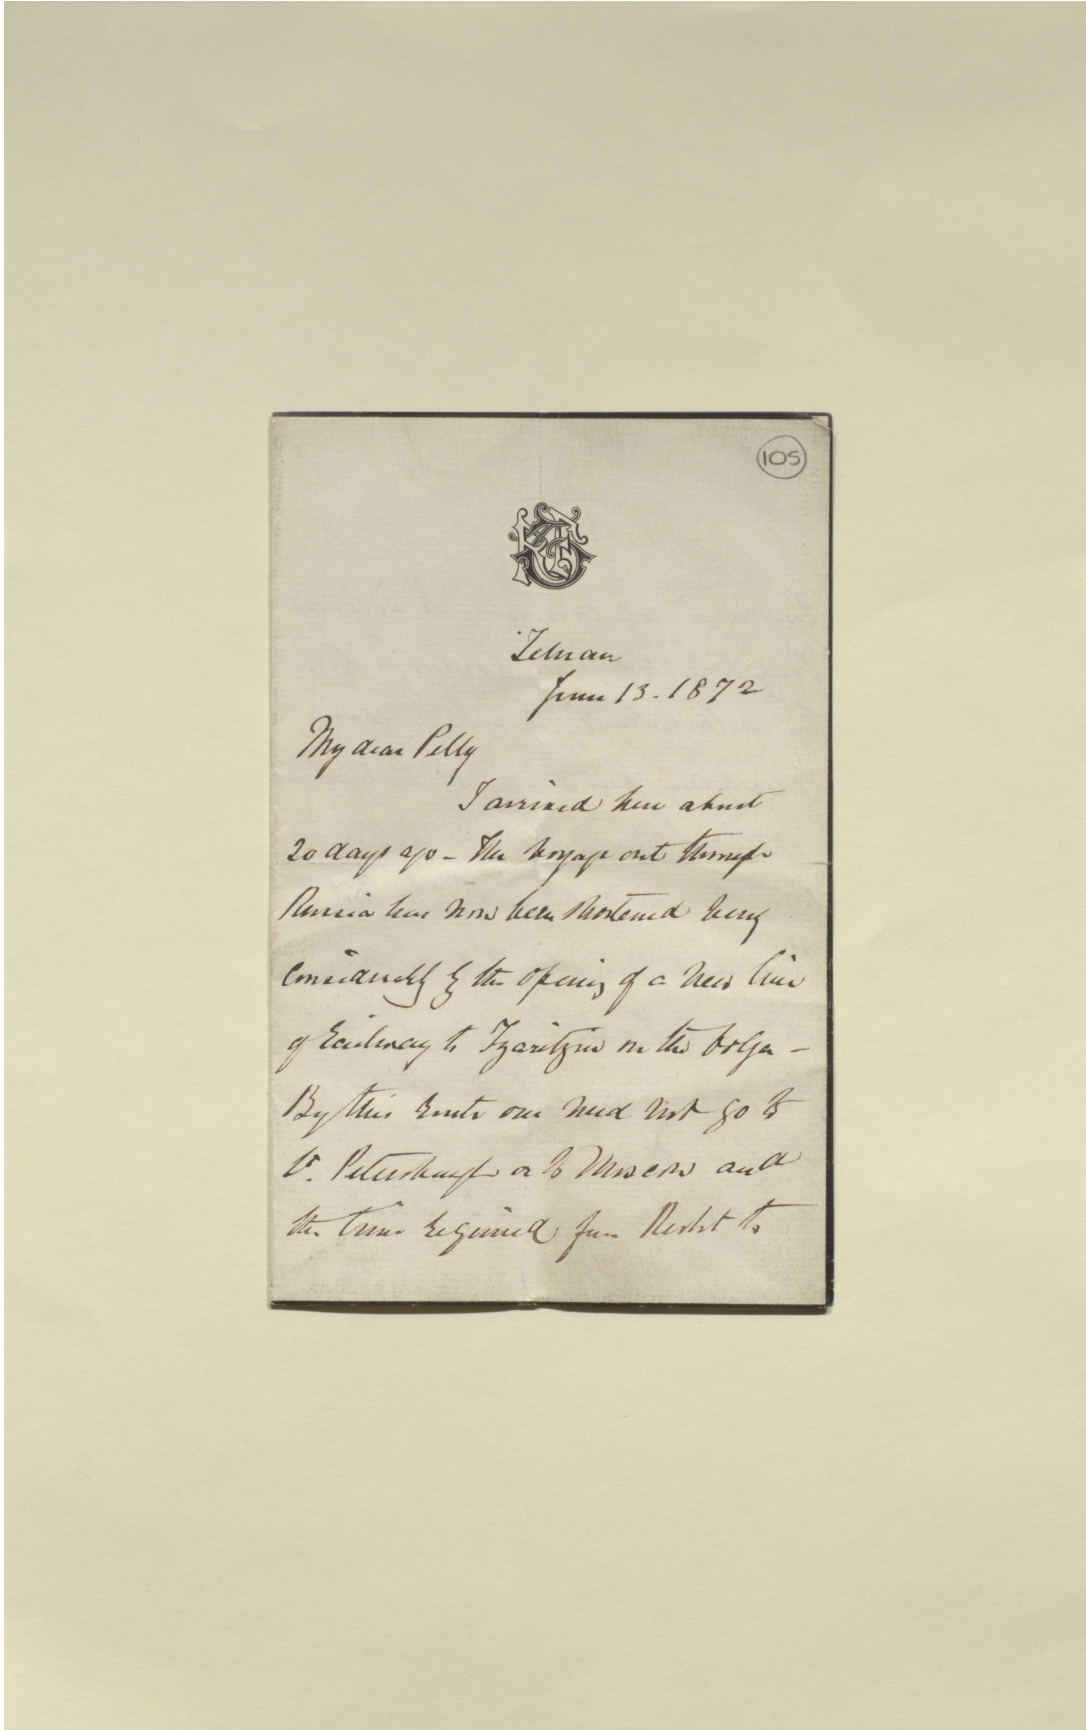 105
Tehran
June 13. 1872
My dear Pelly
I arrived here about
20 days ago - The voyage out through
Russia has now been shortened very
considerably by the opening of a new line
of Railway to Tzaritzin on the Volga -
By this route one need not go to
St. Petersburgh or to Moscow and
the time required from Resht to